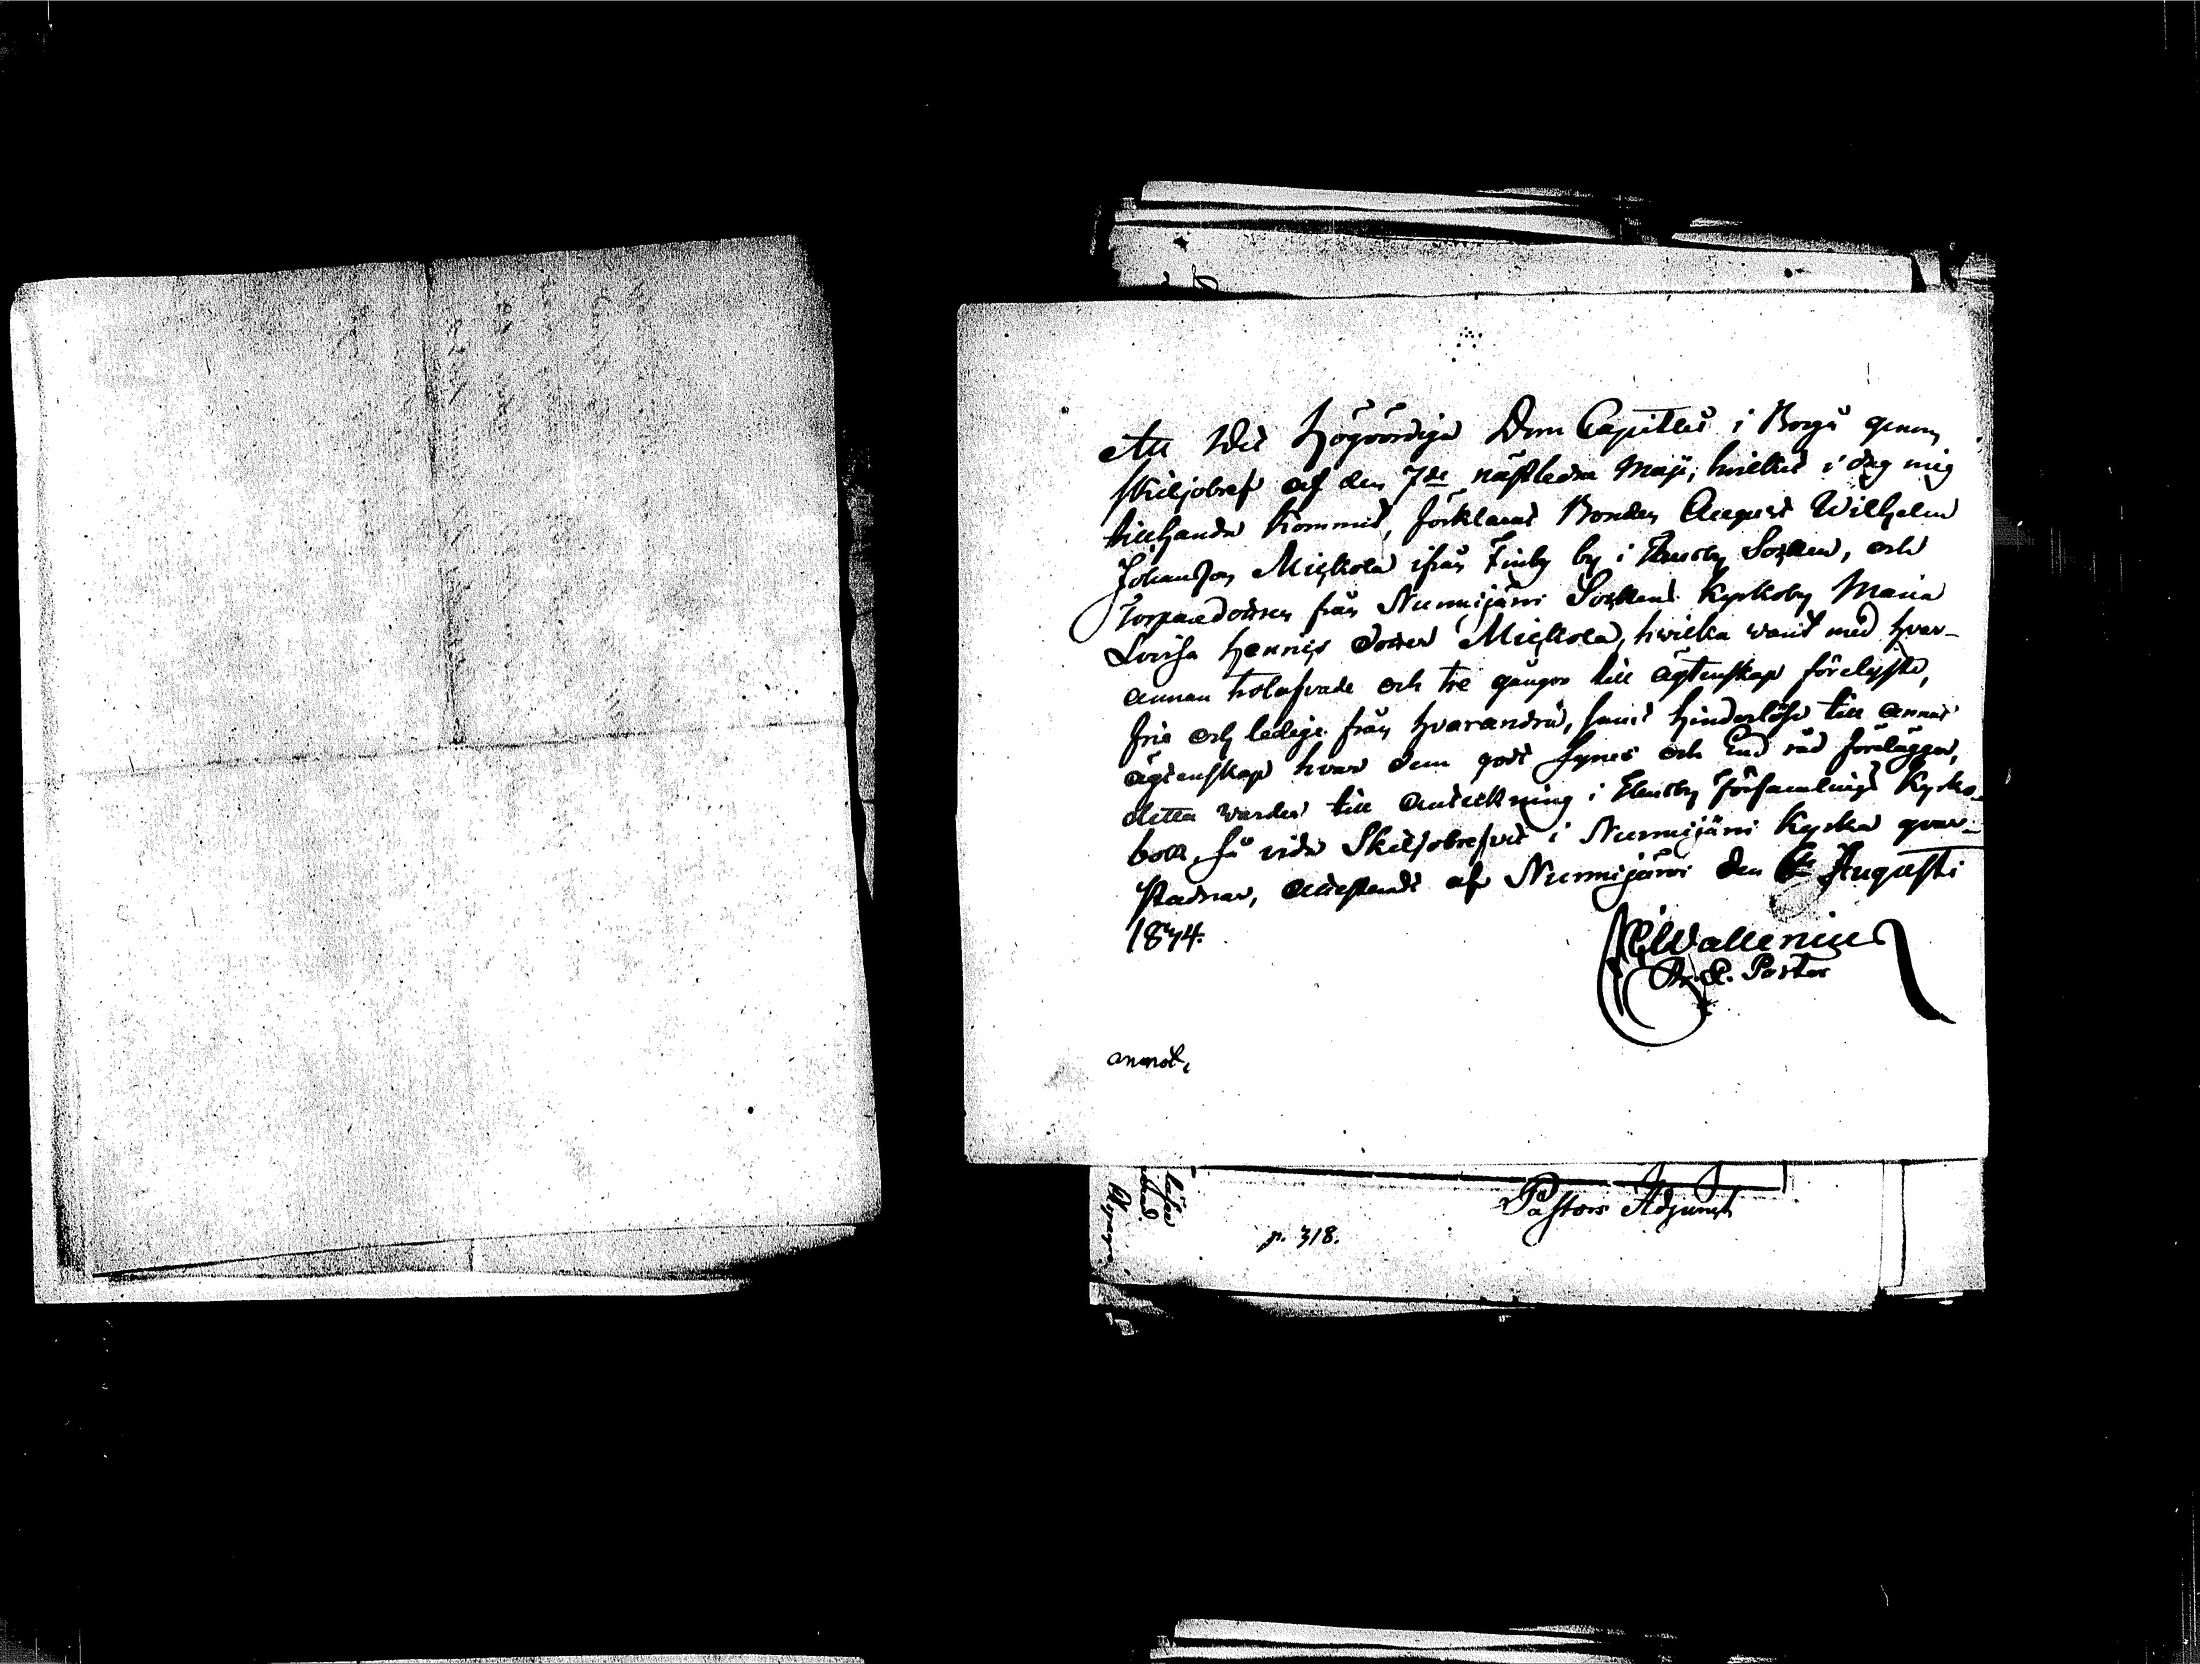 Att Det Högvördiga Dom Capitlet i Borgå genom
skiljobref af den 7de nästledne Maji, hvilket i dag mig
tillhanda kommit, förklarat Bonden August Wilhelm
Johansson Mickola ifrån Finby by i Thusby Socken, och
Torparedottren från Nurmijärvi Sockens Kyrkoby Maria
Lovisa Henrics dotter Mickola, hvilka warit med hvar-
annan trolofvade och tre gånger till ägtenskap förelyste,
frie och ledige från hvarandra, samt hinderlöse till annat
ägtenskap hvar dem godt synes och Gud råd förelägger,
detta warder till anteckning i Thusby Församlings Kyrko-
bok, så vida Skiljobrefvet i Nurmijärvi Kyrka qvar-
stadnar, attesteradt af Nurmijärvi den 6te Augusti
1834.
Wallenius
Pastor
annot.
Pastors Adjunct
p. 318.